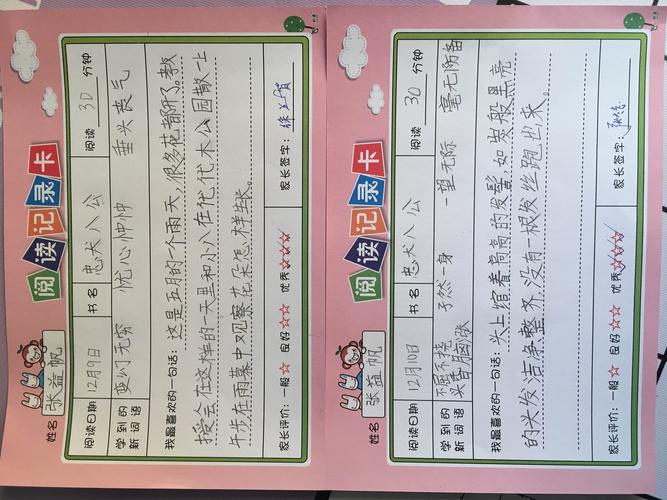 阅读记录卡
姓名 张益帆
阅读日期 12月9日 书名 忠犬八公 阅读 30 分钟
学到的新词语 变幻无穷 忧心忡忡 垂头丧气
我最喜欢的一句话：这是五月的一个雨天，很多花都开了。教
授会在这样的一天里和小八在代代木公园散一上
午步在雨幕中观察花朵怎样生长。
家长评价：一般☆ 良好☆☆ 优秀☆☆☆ 家长签字：
阅读记录卡
姓名 张益帆
阅读日期 12月10日 书名 忠犬八公 阅读 30 分钟
学到的新词语 不屈不挠 孑然一身 一望无际 毫无防备
头昏脑涨
我最喜欢的一句话：头上绾着高高的发髻，如炭般黑亮
的头发洁净整齐，没有一根发丝跑出来。
家长评价：一般☆ 良好☆☆ 优秀☆☆☆ 家长签字：